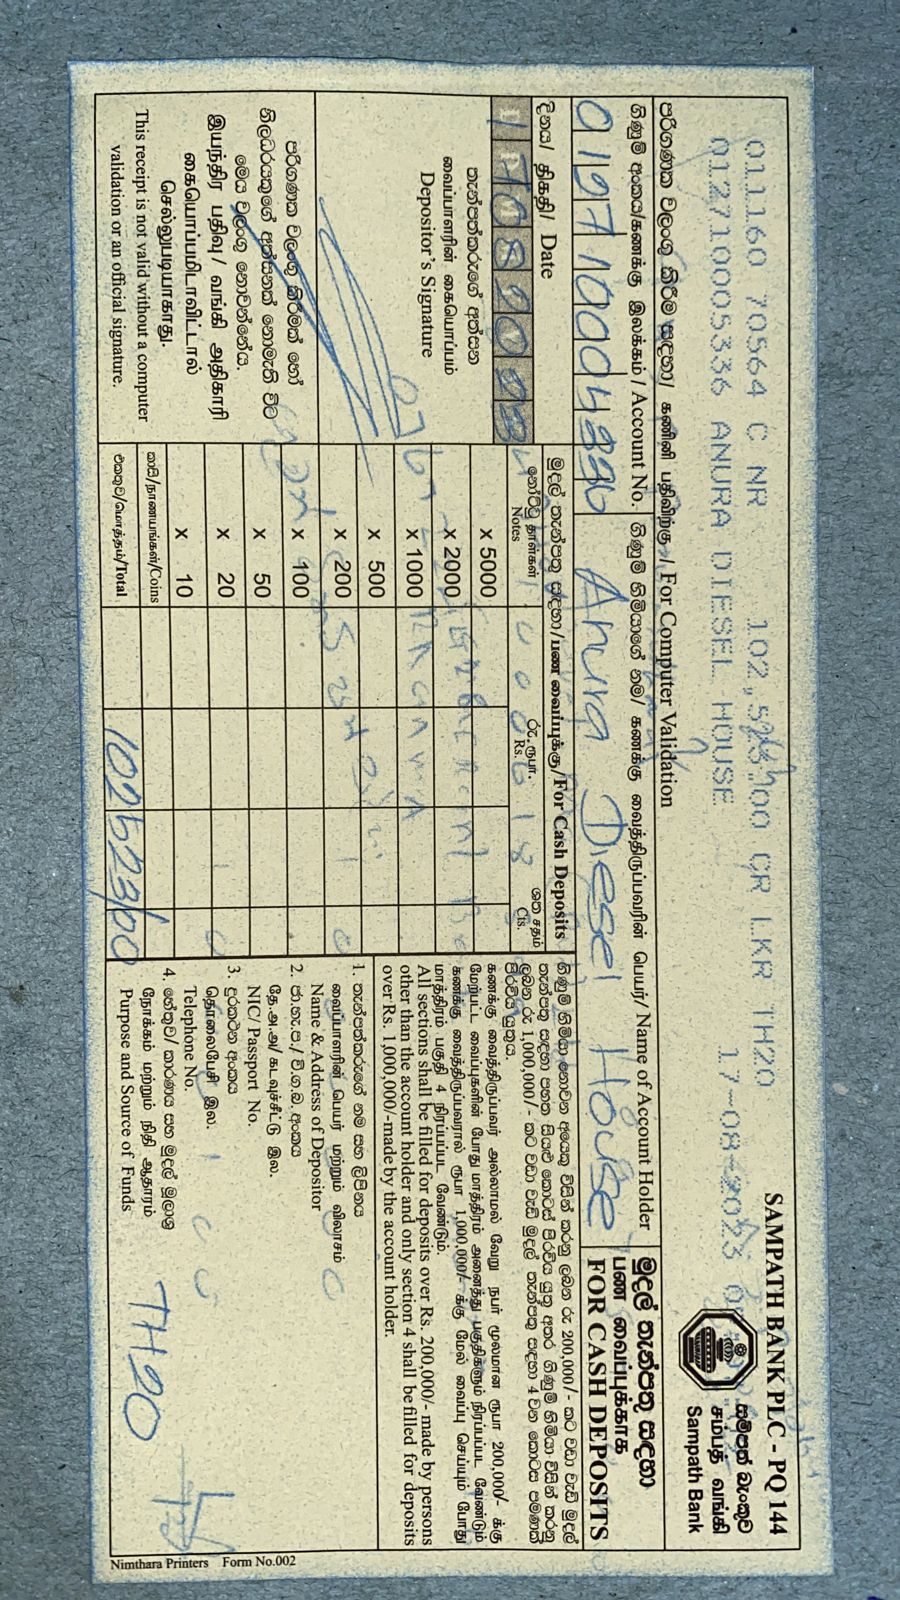 SAMPATH BANK PLC - PQ 144
011160 70564 C NR 102,523.00 CR LKR TH20
012710005336 ANURA DIESEL HOUSE 17-08-2023
සම්පත් බැංකුව
சம்பத் வங்கி
Sampath Bank
පරිගණක වලංගු කිරීම සඳහා/ கணினி பதிவிற்கு / For Computer Validation
ගිණුම් අංකය/கணக்கு இலக்கம் / Account No.
ගිණුම් හිමියාගේ නම/ கணக்கு வைத்திருப்பவரின் பெயர்/ Name of Account Holder
Anura Diesel House
මුදල් තැන්පතු සඳහා
பண வைப்புக்காக
FOR CASH DEPOSITS
දිනය/ திகதி/ Date
17082023
තැන්පත්කරුගේ අත්සන
வைப்பாளரின் கையொப்பம்
Depositor's Signature
පරිගණක වලංගු කිරීමක් හෝ
නිලධරයකුගේ අත්සනක් නොමැති විට
මෙය වලංගු නොවන්නේය.
இயந்திர பதிவு/ வங்கி அதிகாரி
கையொப்பமிடாவிட்டால்
செல்லுபடியாகாது.
This receipt is not valid without a computer
validation or an official signature.
මුදල් තැන්පතු සඳහා/பண வைப்புக்கு/For Cash Deposits
නෝට්ටු தாள்கள் Notes
රු. ரூபா. Rs.
ශත சதம் Cts.
x 5000
x 2000
x 1000
x 500
x 200
x 100
x 50
x 20
x 10
කාසි/நாணயங்கள்/Coins
එකතුව/மொத்தம்/Total 102523/00
ගිණුම් හිමියා නොවන අයෙකු විසින් කරනු ලබන රු 200,000/- කට වඩා වැඩි මුදල්
තැන්පතු සඳහා පහත සියළු කොටස් පිරවිය යුතු අතර ගිණුම් හිමියා විසින් කරනු
ලබන රු 1,000,000/- කට වඩා වැඩි මුදල් තැන්පතු සඳහා 4 වන කොටස පමණක්
පිරවිය යුතුය.
கணக்கு வைத்திருப்பவர் அல்லாமல் வேறு நபர் மூலமான ரூபா 200,000/- க்கு
மேற்பட்ட வைப்புகளின் போது மாத்திரம் அனைத்து பகுதிகளும் நிரப்பப்பட வேண்டும்
கணக்கு வைத்திருப்பவரால் ரூபா 1,000,000/- க்கு மேல் வைப்பு செய்யும் போது
மாத்திரம் பகுதி 4 நிரப்பப்பட வேண்டும்.
All sections shall be filled for deposits over Rs. 200,000/- made by persons
other than the account holder and only section 4 shall be filled for deposits
over Rs. 1,000,000/-made by the account holder.
1. තැන්පත්කරුගේ නම සහ ලිපිනය
வைப்பாளரின் பெயர் மற்றும் விலாசம்
Name & Address of Depositor
2. ජා.හැ.ප./ වි.ග.බ. අංකය
தே.அ.அ/ கடவுச்சீட்டு இல.
NIC/ Passport No.
3. දුරකථන අංකය
தொலைபேசி இல.
Telephone No.
4. හේතුව/ කාරණය සහ මුදල් මූලාශ්‍ර
நோக்கம் மற்றும் நிதி ஆதாரம்
Purpose and Source of Funds
TH20
Nimthara Printers Form No.002